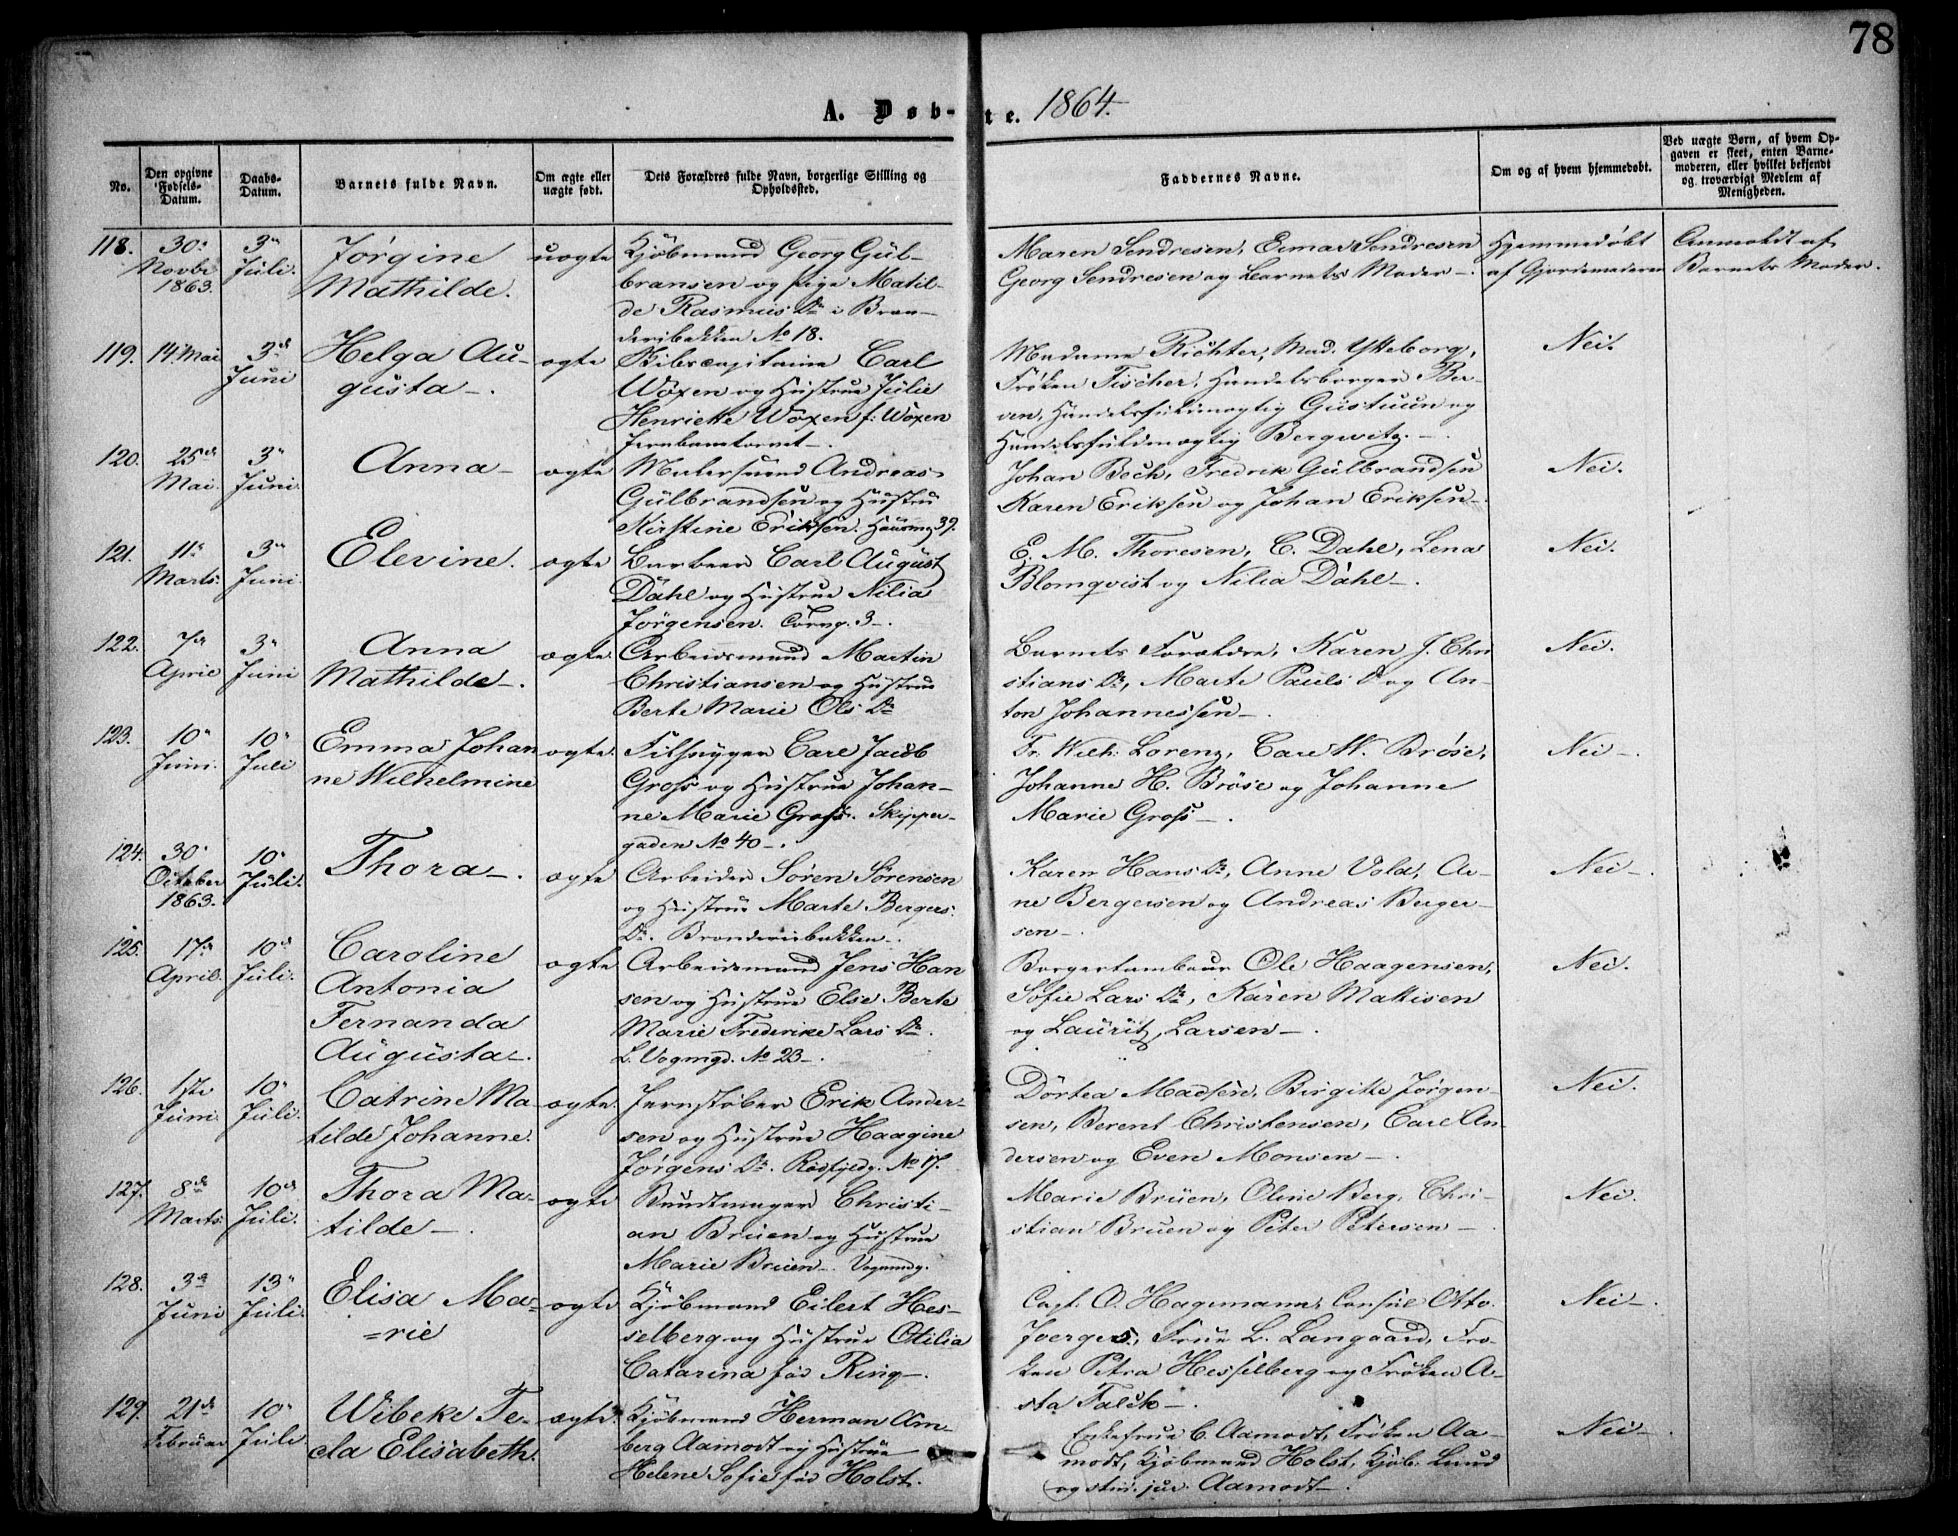 78
A. Døbte. 1864.
No.
Den opgivne Fødsels-Datum.
Daabs-Datum.
Barnets fulde Navn.
Om ægte eller uægte født.
Dets Forældres fulde Navn, borgerlige Stilling og Opholdssted.
Faddernes Navne.
Om og af hvem hjemmedøbt.
Ved uægte Børn, af hvem Opgaven er skeet, enten Barnemoderen, eller hvilket bekjendt og troværdigt Medlem af Menigheden.
118. 30 Novbr 1863. 3 Juli. Jørgine Mathilde. uægte
Kjøbmand Georg Gül-
bransen og Pige Matil-
de Rasmus Dr i Bran-
deribakken No 18.
Maren Sendresen, Sendresen
Georg Sendresen og Barnets Moder.
Hjemmedøbt
af Gjordemoderen
Anmeldt af
Barnets Moder.
119. 14 Mai 3d Juni Helga Au-
gusta. ægte
Carl
Woxen og Hustrue Julie
Henrieke Woxen f: Woxen
Jernbanetorvet.
Madame Richter, Mad. Ytteborg,
Frøken Fischer, Handelsborger Ber-
ven, Handelsfuldmægtig og
Handelsfuldmægtig Bergwitz.
Nei.
120. 25d Mai. 3 Juni. Anna ægte
Malersvend Andreas
Gülbrandsen og Hustru
Kirstine Eriksen. 39.
Johan Bech, Fredrik Gülbrandsen
Karen Eriksen og Johan Eriksen.
Nei.
121. 11 Marts. 3 Juni Elevine. ægte
Barbeer Carl August
Dahl og Hustrue Nilia
Jørgensen. 3.
E. M. Thoresen, C. Dahl, Lena
Blomqvist og Nilia Dahl.
Nei.
122. 7de April 3 Juni Anna
Mathilde. ægte
Arbeidsmand Martin
Christiansen og Hustrue
Berte Marie Ols Dr
Barnets Forældre, Karen J. Chri
stians Dr, Marte Pauls D og An-
ton Johannessen.
Nei.
123. 10 Juni. 10 Juli Emma Johan
ne Wilhelmine ægte
Carl Jacob
Gross og Hustrue Johan-
ne Marie Gross. Skipper-
gaden No 40.
Fr. Wilh. Lorenz, Carl W. Brøse,
Johanne H. Brøse og Johanne
Marie Gross.
Nei.
124. 30 October 1863. 10 Juli. Thora. ægte
Arbeider Søren Sørensen
og Hustrue Marte Bergers
Dr. Branderibakken.
Karen Hans Dr, Anne Vold, Ar-
ne Bergersen og Andreas Berger-
sen.
Nei.
125. 17de April. 10d Juli. Caroline
Antonia
Fernanda
Augusta. ægte
Arbeidsmand Jens Han
sen og Hustrue Else Berte
Marie Frederike Lars Dr.
L. Vogmgd. No 23.
Borgertambour Ole Haagensen,
Sofie Lars Dr, Karen Mattisen
og Lauritz Larsen.
Nei.
126. 1ste Juni. 10 Juli. Catrine Ma-
tilde Johanne. ægte.
Jernstøber Erik Ander-
sen og Hustrue Haagine
Jørgens Dr. Rødfjeldg. No 17.
Dörtea Madsen, Birgitte Jørgen-
sen, Berent Christensen, Carl An
dersen og Even Monsen.
Nei.
127. 8de Marts. 10d Juli. Thora Ma-
tilde. ægte
Bundtmager Christi-
an Bruen og Hustrue
Marie Bruen. Vognmdg.
Marie Bruen, Oline Berg, Chri-
stian Bruen og Peter Petersen.
Nei.
128. 3d Juni 13 Juli. Elisa Ma-
rie ægte
Kjøbmand Eilert Hes-
selberg og Hustrue Otilia
Catarina fød Ring.
Capt. O. Hagemann, Consul Otto
Joerges, Frue L. Langaard, Frø-
ken Petra Hesselberg og Frøken A-
sta Falck.
Nei.
129. 21d Februar 10 Juli. Wibeke Te-
cla Elisabeth. ægte.
Kjøbmand Herman Am-
berg Aamodt og Hustrue
Helene Sofie fød Holst.
Enkefrue C. Aamodt, Frøken Aa-
modt, Kjøbmand Holst, Kjøb. Lund
og stud. jur. Aamodt.
Nei.